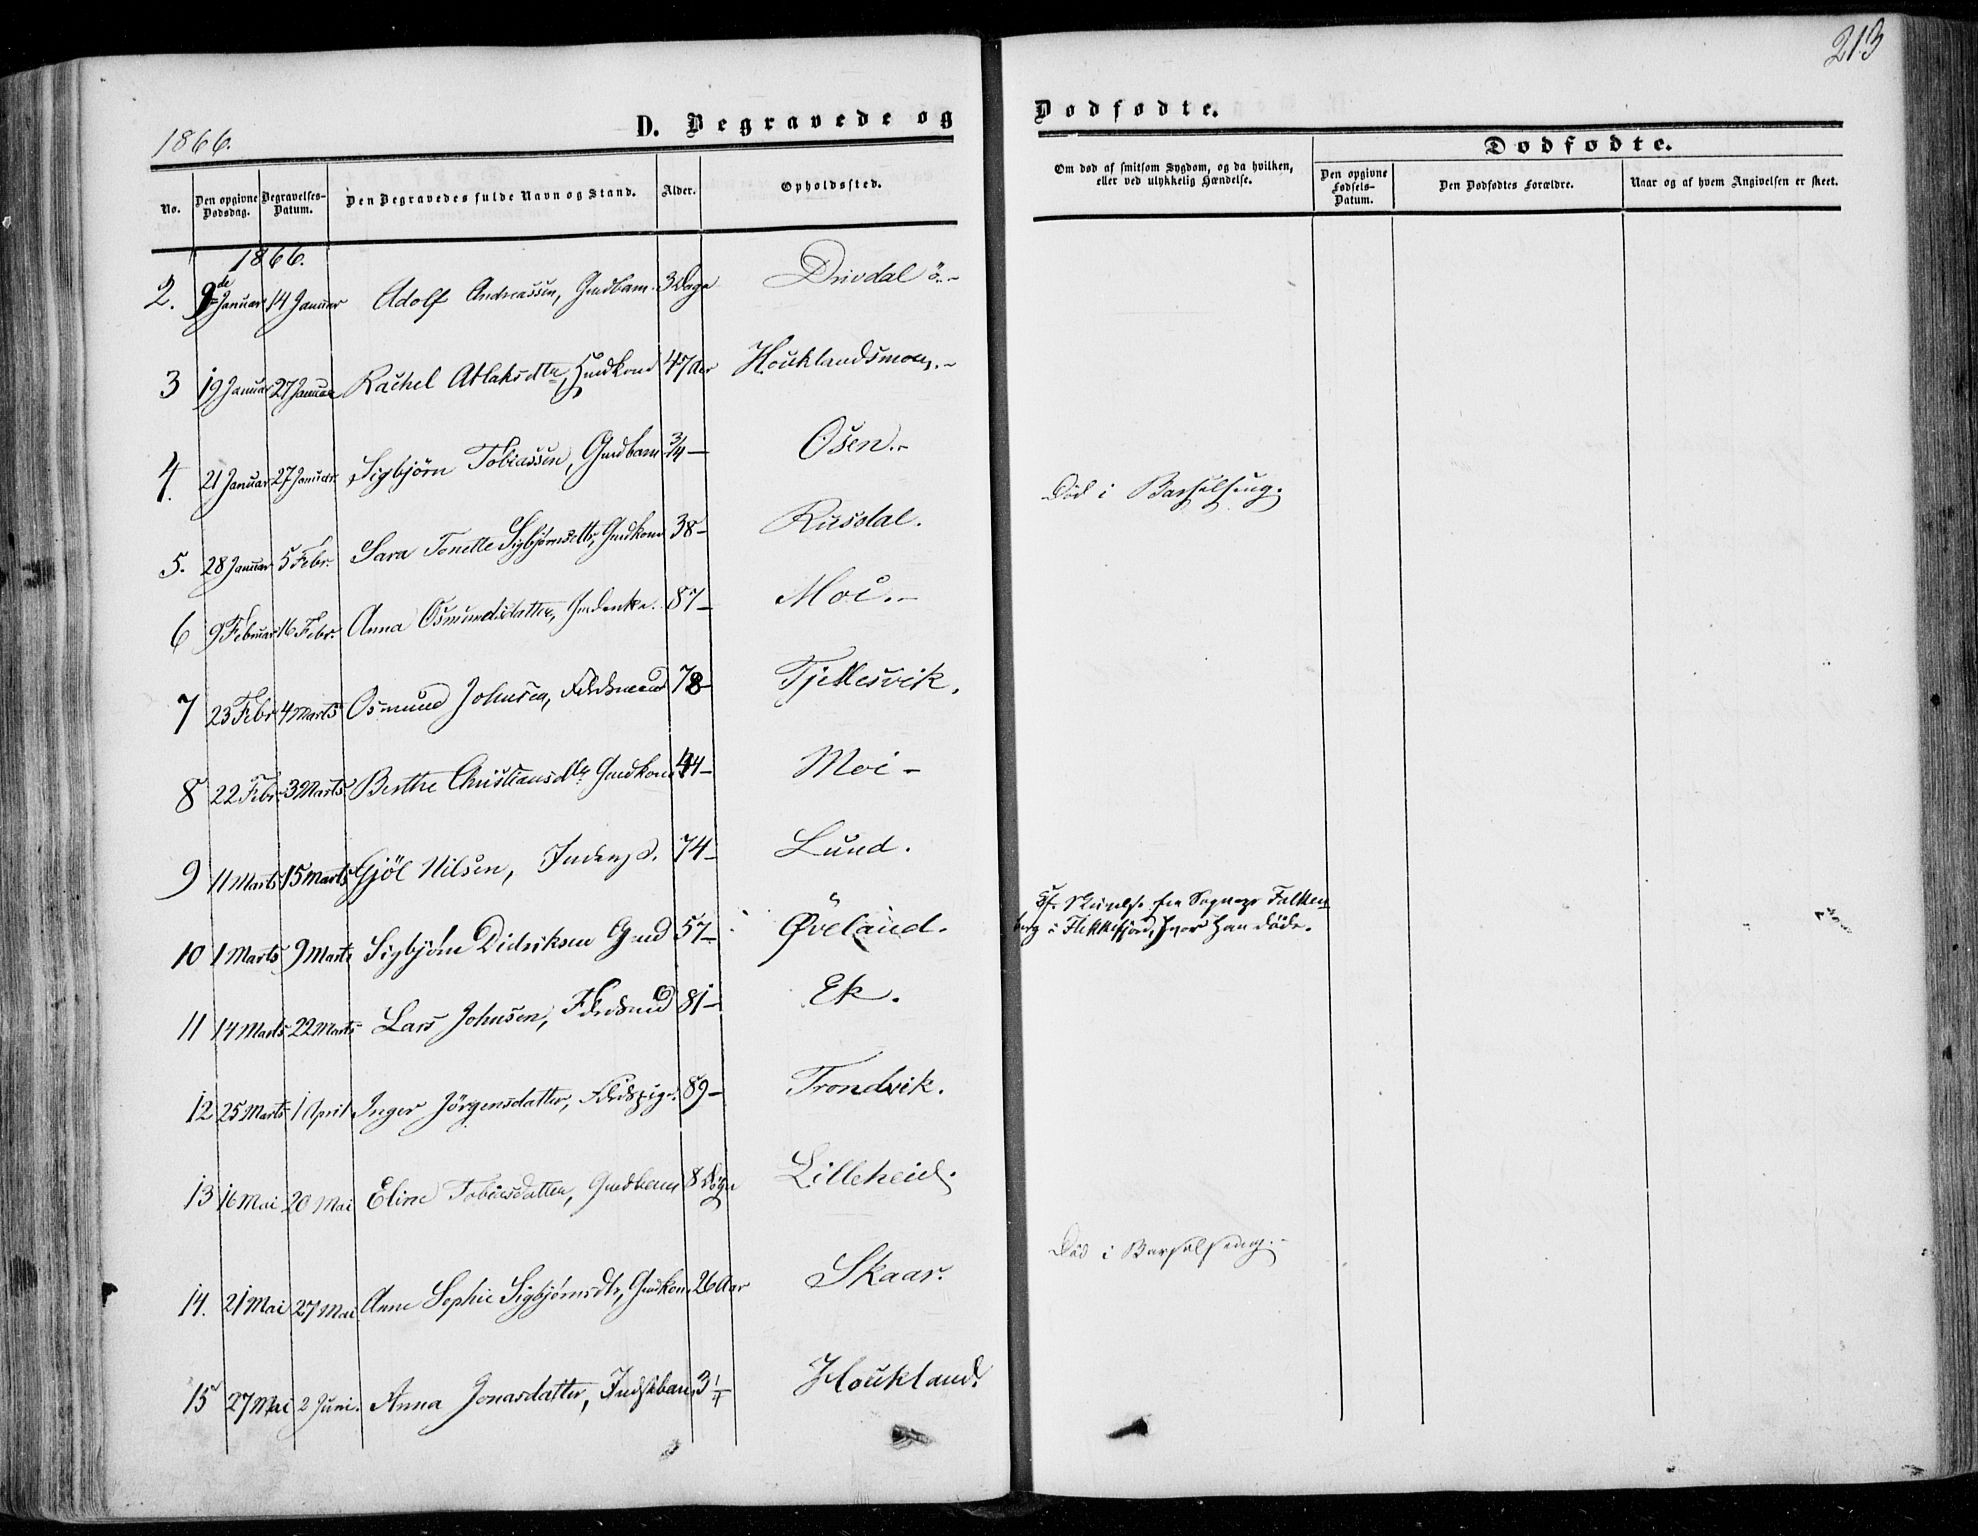 213
1866.
D. Begravede og Dødfødte.
No.
Den opgivne Dødsdag.
Begravelses-Datum.
Den Begravedes fulde Navn og Stand.
Alder.
Opholdssted.
Om død af smitsom Sygdom, og da hvilken,
eller ved ulykkelig Hændelse.
Dødfødte.
Den opgivne Fødsels-Datum.
Den Dødfødtes Forældre.
Naar og af hvem Angivelsen er skeet.
1866.
2. 9de Januar 14 Januar Adolf Andreassen, Gmdbarn 3 Dage Drivdal ö.-
3 19 Januar 27 Januar Rachel Atlaksdtr, Hmdkone 47 Aar Houklandsmoen.-
4. 21 Januar 27 Januar Sigbjörn Tobiassen, Gmdbarn 3/4 — Osen.-
Død i Barselseng.
5. 28 Januar 5 Febr. Sara Tonette Sigbjørnsdttr, Gmdkone 38 – Rusdal.
6 9 Februar 16 Febr. Anna Osmundsdatter, Gmdenke. 87 – Moi.-
7 23 Febr 4 Marts Osmund Johnsen, Fdrdsmand 78 – Tjellesvik.
8 22 Febr. 3 Marts Berthe Christiansdtr Gmdkone 44 – Moi –
9 11 Marts 15 Marts Gjöl Nilsen, 74 – Lund.
10 1 Marts 9 Marts Sigbjörn Didriksen Gmd 57 – Øveland.
Ef. Skrivelse fra Sognepr Falken-
berg i Flekkefjord, hvor han døde.
11 14 Marts 22 Marts Lars Johnsen, Fdrdsmd 81 – Ek.
12 25 Marts 1 April Inger Jörgensdatter, Fdrdspige. 89 – Trondvik.
13 16 Mai 20 Mai Eline Tobiesdatter, Gmdbarn 8 Døgn Lilleheid.
Død i Barselseng.-
14. 21 Mai 27 Mai Anne Sophie Sigbjørnsdtr, Gmdkone 26 Aar Skaar.
15 27 Mai 2 Juni. Anna Jonasdatter, Indstbarn 3 1/4 Houkland.